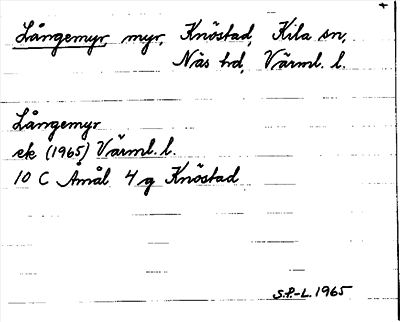 Långemyr, myr, Knöstad, Kila sn,
Näs hd, Värml. l.
Långemyr
ek (1965) Värml. l.
10 C Åmål 4 g Knöstad
S.P.-L. 1965